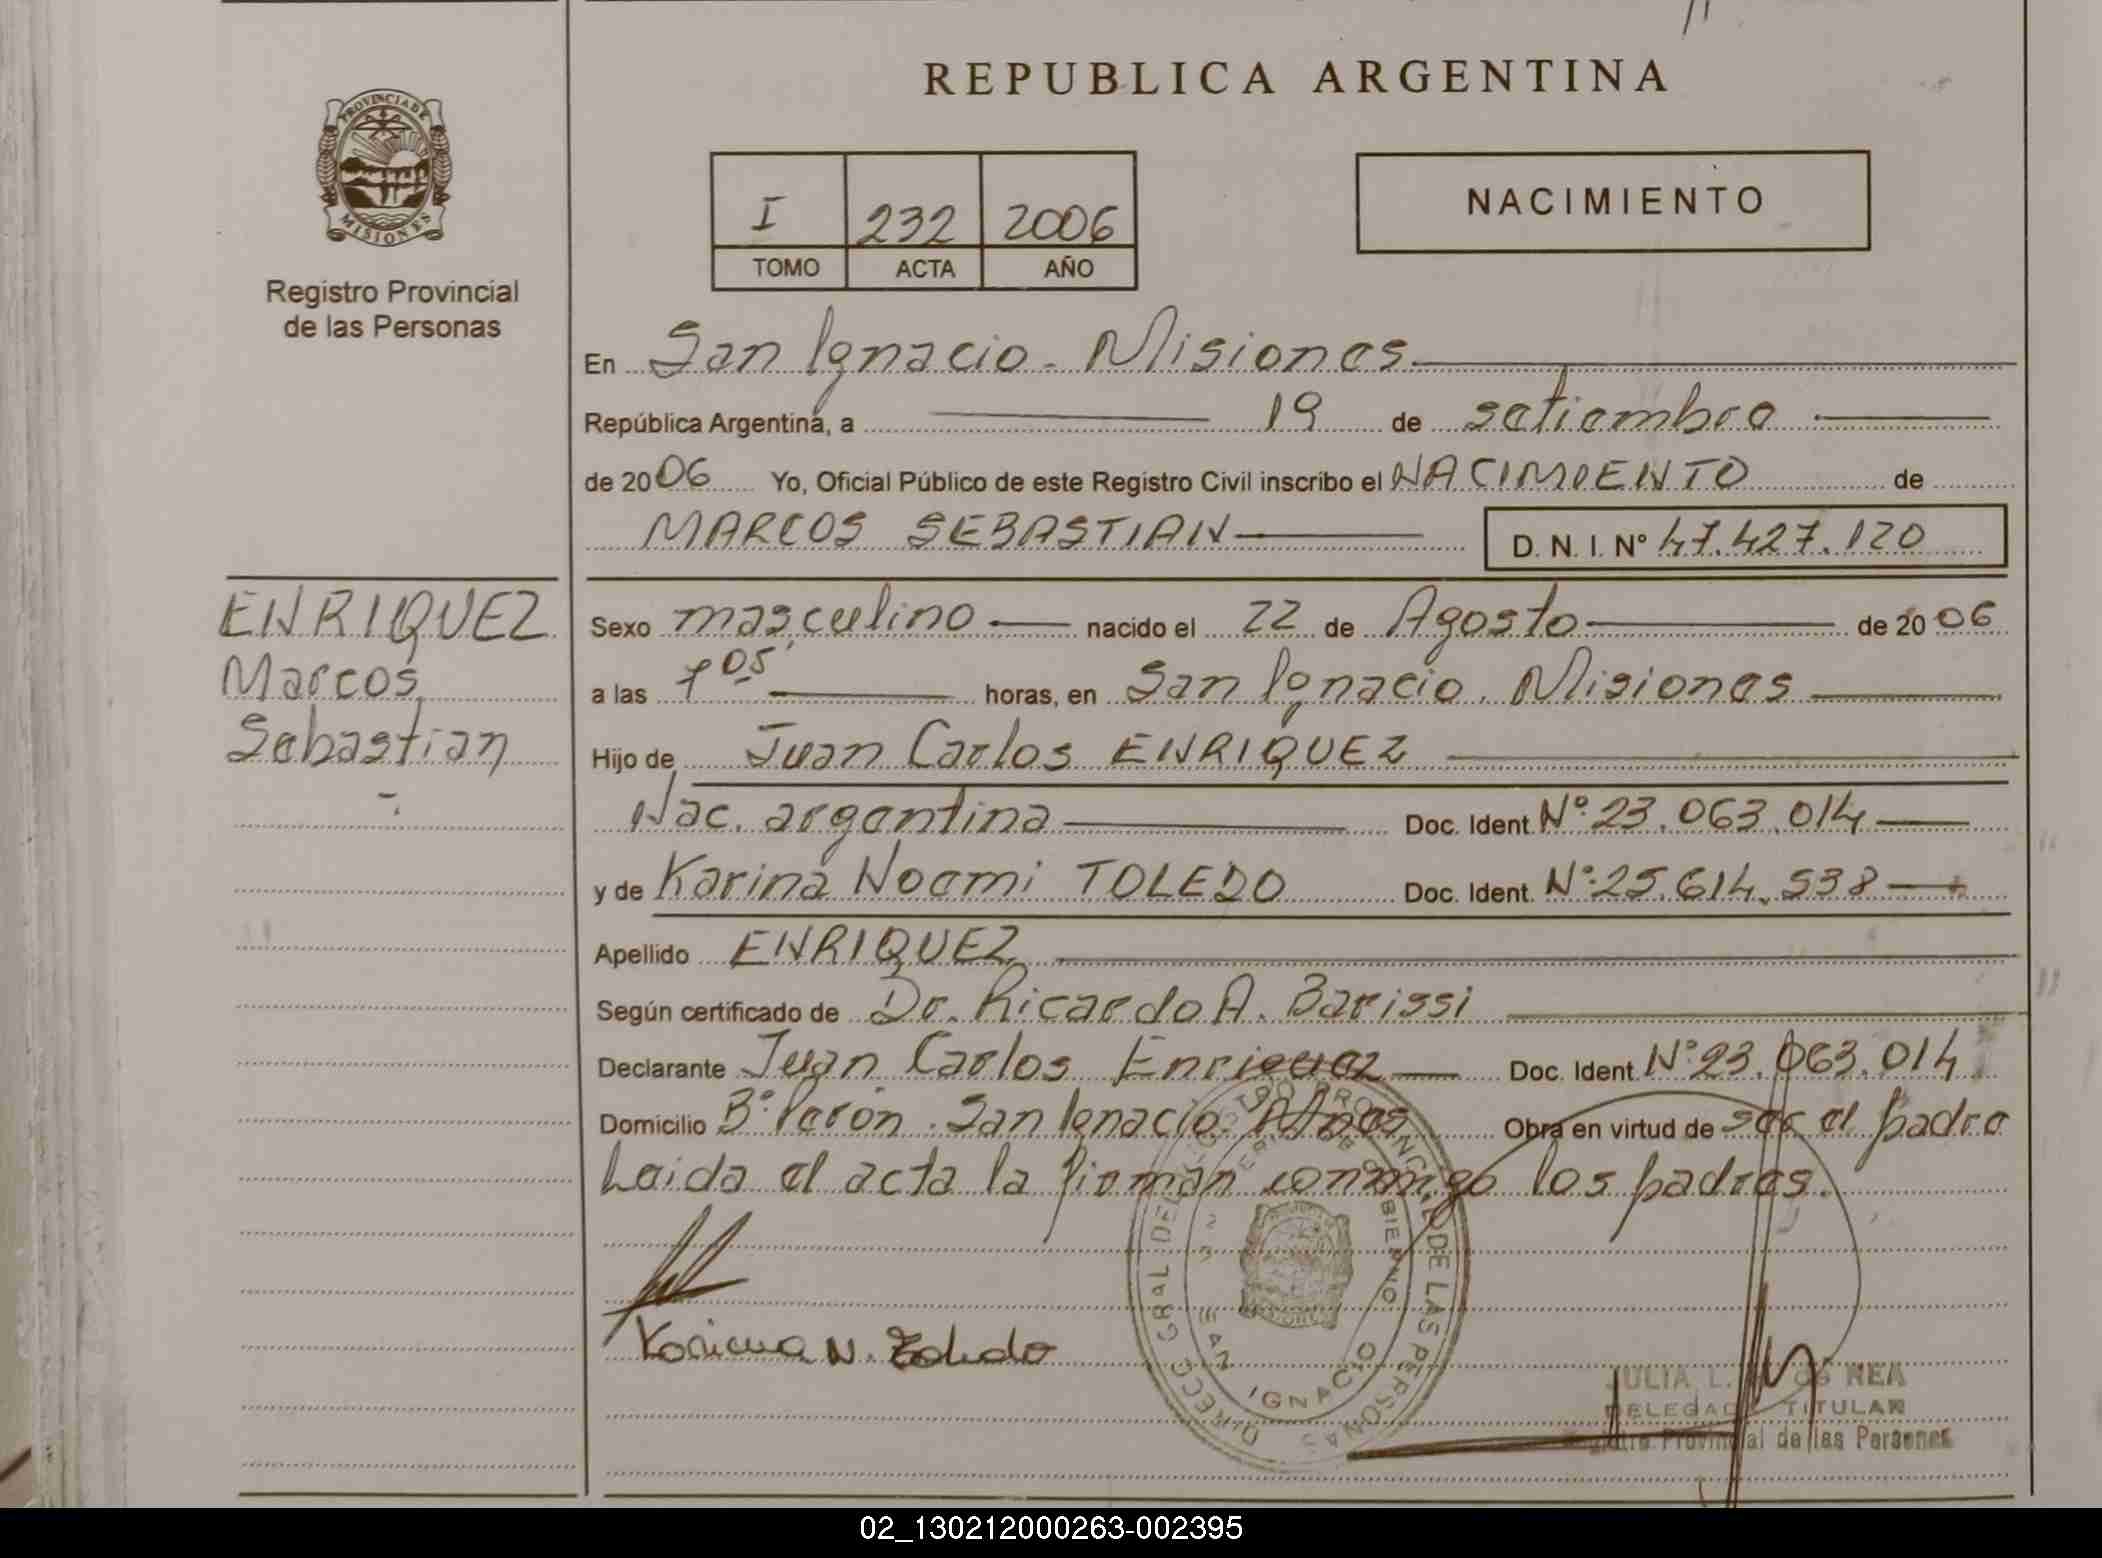 REPUBLICA ARGENTINA
PROVINCIA DE
MISIONES
Registro Provincial
de las Personas
I 232 2006
TOMO ACTA AÑO
NACIMIENTO
En San Ignacio - Misiones
República Argentina, a 19 de setiembre
de 2006 Yo, Oficial Público de este Registro Civil inscribo el NACIMIENTO de
MARCOS SEBASTIAN D. N. I. Nº 47.427.120
ENRIQUEZ
Marcos
Sebastian
Sexo masculino nacido el 22 de Agosto de 2006
a las horas, en San Ignacio. Misiones
Hijo de Juan Carlos ENRIQUEZ
Nac. argentina Doc. Ident. Nº 23.063.014
y de Karina Noemi TOLEDO Doc. Ident. Nº 25.614.538
Apellido ENRIQUEZ
Según certificado de Dr. Ricardo A. Barissi
Declarante Juan Carlos Enriquez Doc. Ident. Nº 23.063.014
Domicilio Bº Perón. San Ignacio. Mnes Obra en virtud de ser el padre
Leida el acta la firman conmigo los padres.
Karina N. Toledo
DIRECC GRAL DEL REGISTRO PROVINCIAL DE LAS PERSONAS
SAN IGNACIO
JULIA L. NEA
DELEGADA TITULAR
Registro Provincial de las Personas
02_130212000263-002395